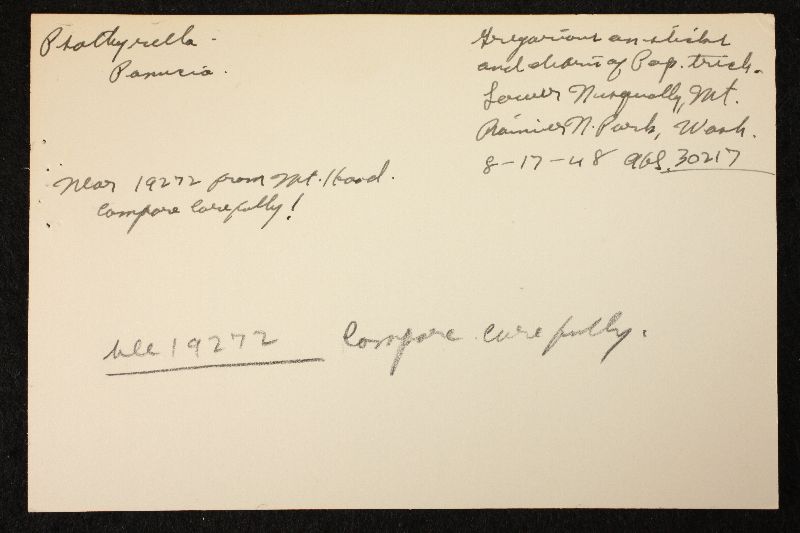 Psathyrella
Gregarious on sticks
and debris of Pop. trich.
Lower Nisqually, Mt.
Rainier N. Park, Wash.
8-17-48 AHS 30217
Near 19272 from Mt. Hood.
Compare carefully!
see 19272 Compare carefully.